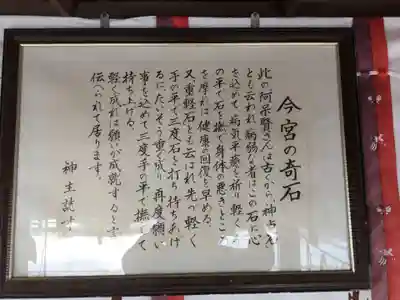 今宮の奇石
此の阿呆賢さんは古くから、神占石
とも云われ、病弱な者はこの石に心
を込めて、病気平癒を祈り軽く手
の平で石を撫で身体の悪きところ
を摩れば、健康の回復を早める。
又、重軽石とも云はれ先づ軽く
手の平で三度石を打ち持ちあげ
るに、たいそう重く成り、再度願い
事を込めて三度手の平で撫でて
持ち上げる。
軽く成れば願いが成就すると言い
伝へられて居ります。
神主誌す